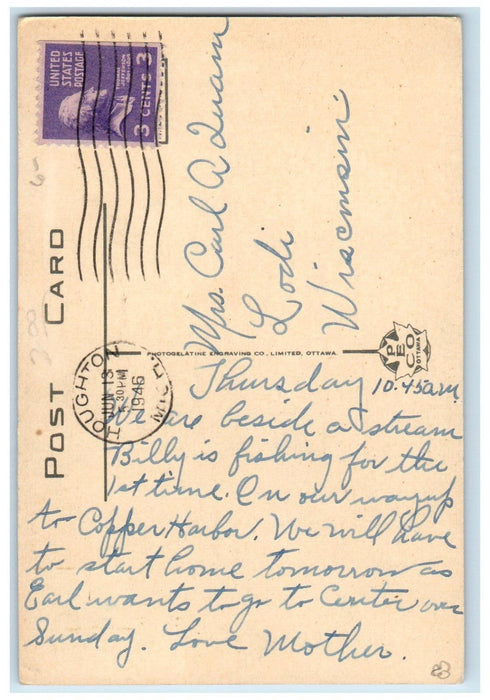 UNITED
STATES
POSTAGE
3 CENTS 3
HOUGHTON
JUN 13
5 30 PM
1946
MICH.
POST CARD
Mrs. Carl A Quam
Lodi
Wisconsin
PHOTOGELATINE ENGRAVING CO., LIMITED, OTTAWA.
PECO
OTTAWA
Thursday 10.45 a.m.
We are beside a stream
Billy is fishing for the
1st time. On our way up
to Copper Harbor. We will have
to start home tomorrow as
Earl wants to go to Center over
Sunday. Love Mother.